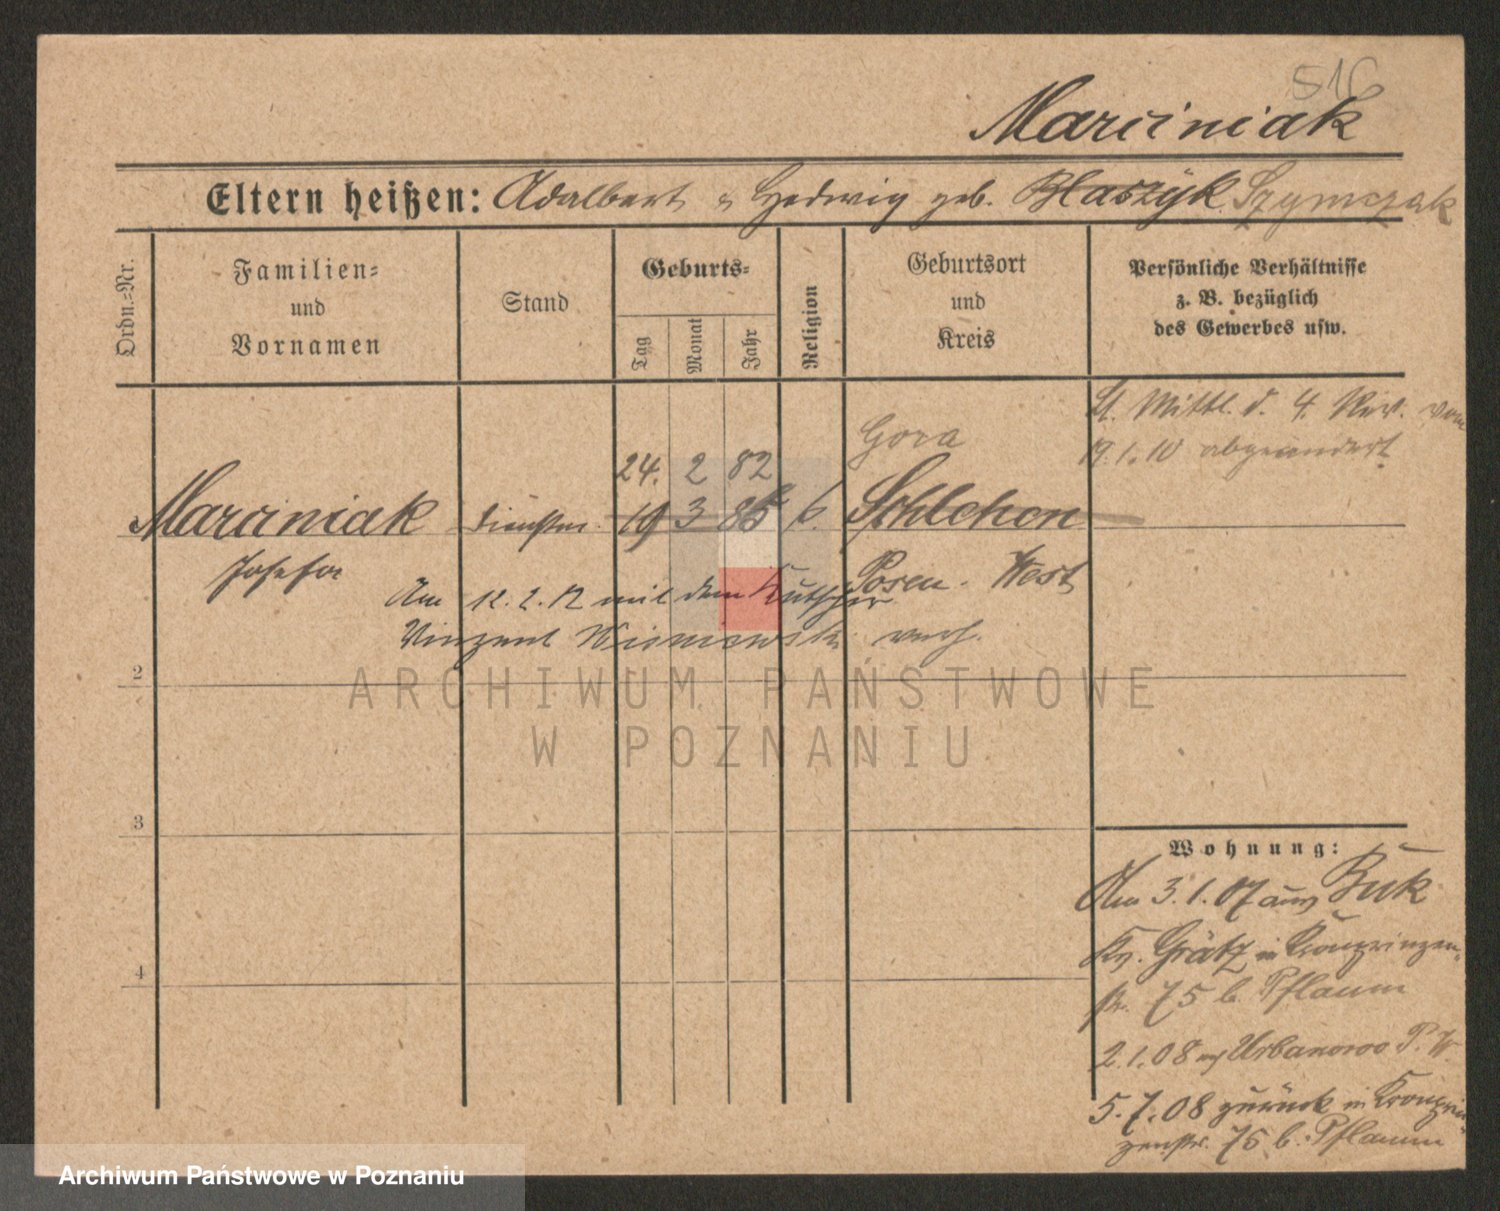 516
Marciniak
Eltern heißen: Adalbert u Hedwig geb. Blaszyk Szymczak
Ordn.=Nr.
Familien=
und
Vornamen
Stand
Geburts=
Tag
Monat
Jahr
Religion
Geburtsort
und
Kreis
Persönliche Verhältnisse
z. B. bezüglich
des Gewerbes usw.
Lt. Mittl. d. 4. Rev. vom
19.1.10 abgeändert.
Gora
24. 2 82
Marciniak 19 3 Schlehen
Josefa
Posen-West
Am 12.2.12 mit dem Kutscher
Vinzent Wisniewski verh.
2
3
4
Wohnung:
Am 3.1.07 aus Buk
Kr. Grätz in Kronprinzen-
str. 75 b. Pflaum
2.1.08 Urbanowo P. W.
5.7.08 zurück in Kronprin-
zenstr. 75 b. Pflaum
ARCHIWUM PAŃSTWOWE
W POZNANIU
Archiwum Państwowe w Poznaniu